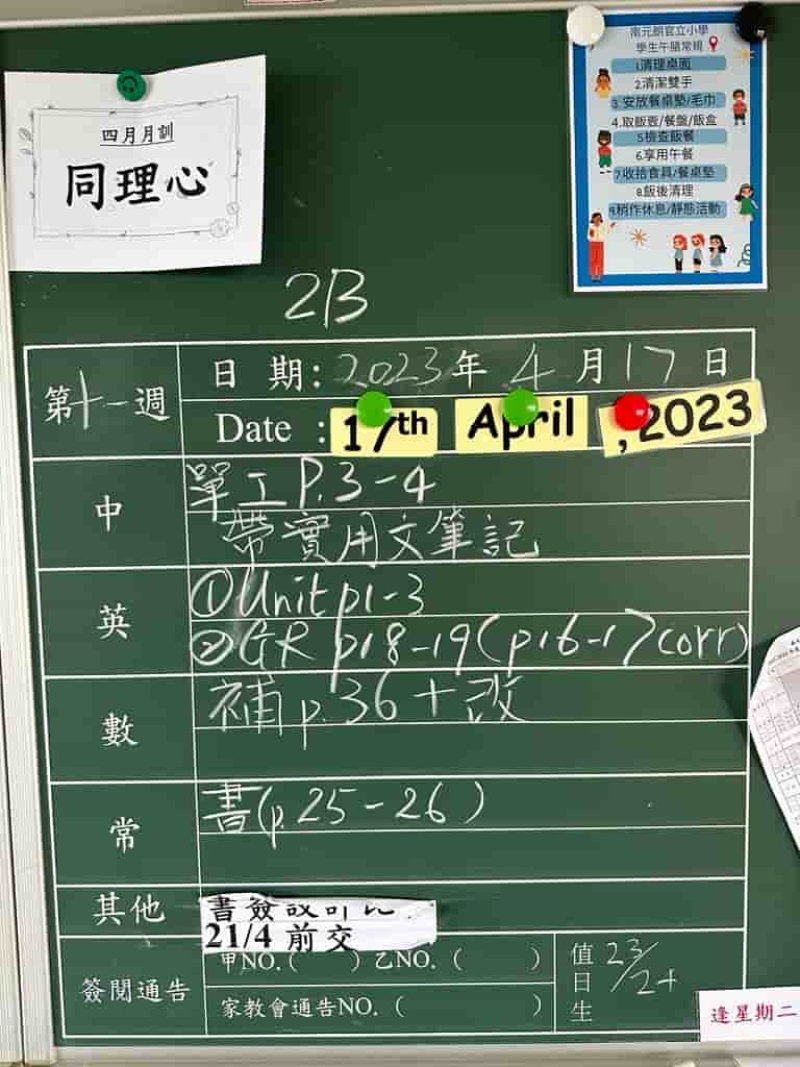 四月月訓
同理心
南元朗官立小學
學生午膳常規
1.清理桌面
2.清潔雙手
3.安放餐桌墊/毛巾
4.取飯壺/餐盤/飯盒
5.檢查飯餐
6.享用午餐
7.收拾食具/餐桌墊
8.飯後清理
9.稍作休息/靜態活動
2B
第十一週
日期:2023年4月17日
Date : 17th April , 2023
中
單工 P.3-4
帶實用文筆記
英
①Unit p1-3
②GR p18-19(p16-17corr)
數
補p.36+改
常
書(p.25-26)
其他
書簽設計比
21/4 前交
簽閱通告
甲NO.( ) 乙NO.( )
家教會通告NO.( )
值日生
23/24
逢星期二